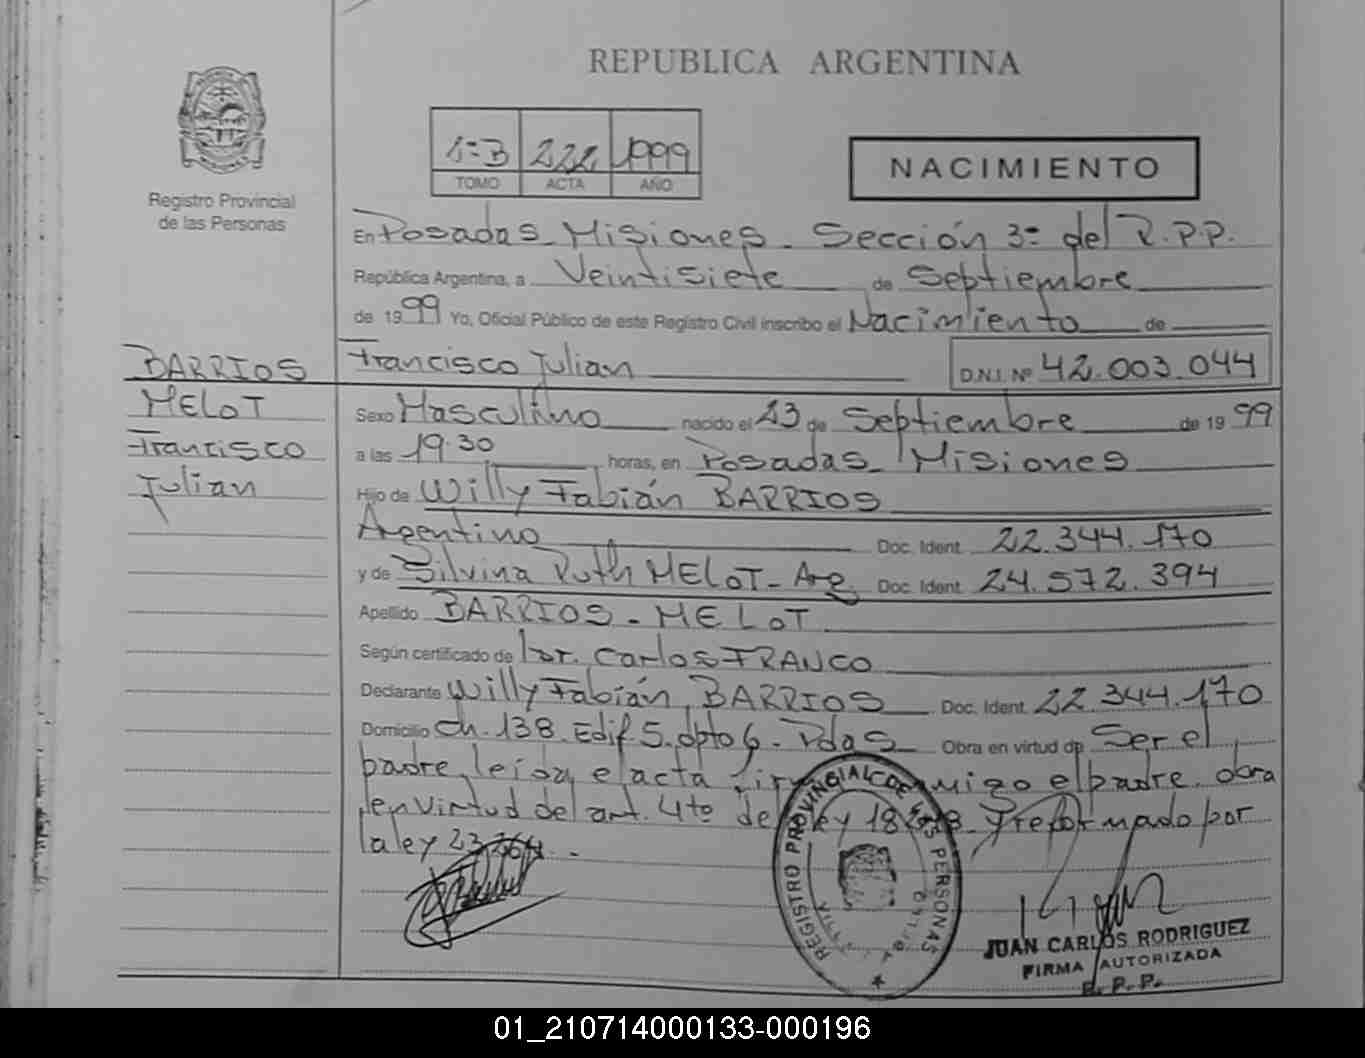 REPUBLICA ARGENTINA
Registro Provincial
de las Personas
1º B 222 1999
TOMO ACTA AÑO
NACIMIENTO
En Posadas Misiones - Sección 3º del R.P.P.
República Argentina, a Veintisiete de Septiembre
de 1999 Yo, Oficial Público de este Registro Civil inscribo el Nacimiento de
Francisco Julian D.N.I. Nº 42.003.044
BARRIOS
MELOT
Francisco
Julian
Sexo Masculino nacido el 23 de Septiembre de 1999
a las 19.30 horas, en Posadas Misiones
Hijo de Willy Fabián BARRIOS
Argentino Doc. Ident. 22.344.170
y de Silvina Ruth MELOT - Arg. Doc. Ident. 24.572.394
Apellido BARRIOS - MELOT
Según certificado de Dr. Carlos FRANCO
Declarante Willy Fabián BARRIOS Doc. Ident. 22.344.170
Domicilio Ch. 138 Edif 5. dpto 6 - Pdas Obra en virtud de Ser el
padre, leída el acta conmigo el padre. obra
en virtud del art. 4to de ley y reformado por
la ley
REGISTRO PROVINCIAL DE LAS PERSONAS
JUAN CARLOS RODRIGUEZ
FIRMA AUTORIZADA
R. P. P.
01_210714000133-000196